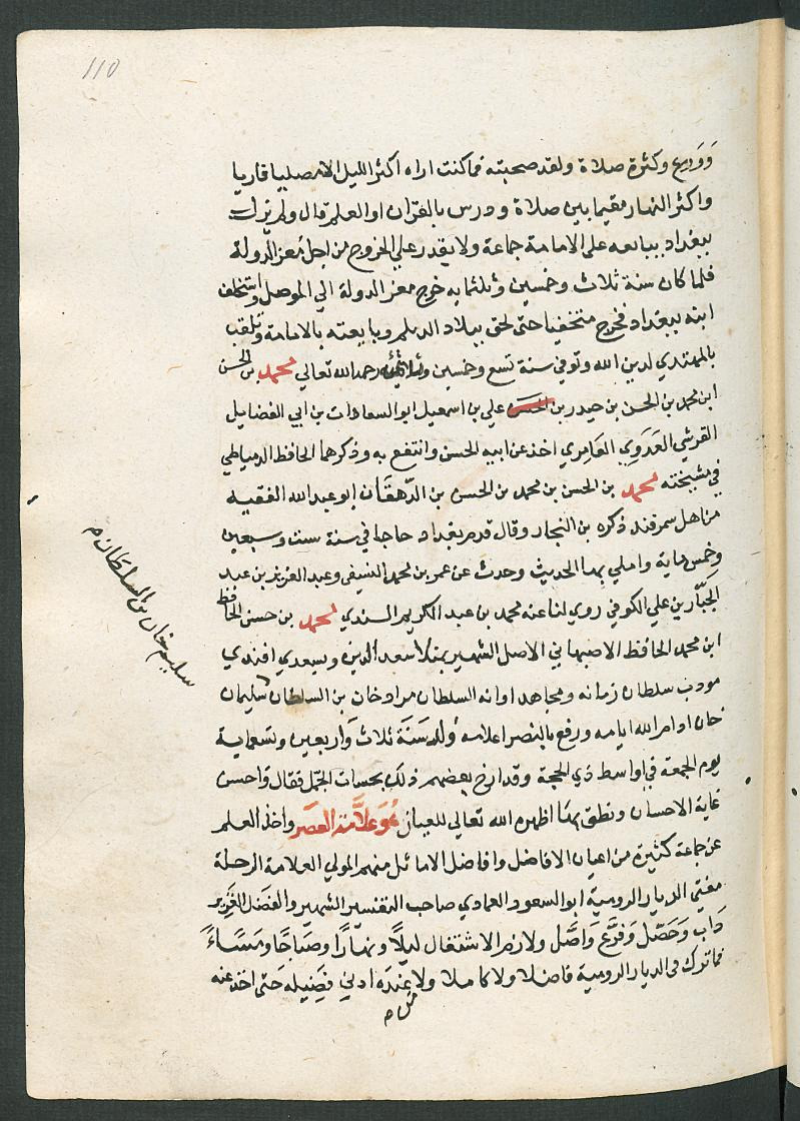 110
وَوَرَع وكثرة صلاة ولقد صحبته فما كنت اراه اكثر الليل الا مصليا قاريا
واكثر النهار مقيما بين صلاة ودرس بالقرآن او العلم قال ولم يزل
ببغداد يبايعه على الامامة جماعة ولا يقدر علي الخروج من اجل مُعز الدولة
فلما كان سنة ثلاث وخمسين وثلثمايه خرج معز الدولة الي الموصل واستخلف
ابنه ببغداد فخرج متخفيا حتى لحق ببلاد الديلم وبايعته بالامامة وتلقب
بالمهتدي لدين الله وتوفي سنة تسع وخمسين وثلاثمئة رحمه الله تعالي محمد بن الحسن
ابن محمد بن الحسن بن حيدر بن علي بن اسمعيل ابو السعادات بن ابي الفضايل
القرشي العَدَوِي العَامِري اخذ عن ابيه الحسن وانتفع به وذكرهما الحافظ الدمياطي
في مشيخته محمد بن الحسن بن محمد بن الحسن بن الدّهقَان ابو عبد الله الفقيه
من اهل سمرقند ذكره بن النجار وقال قدم بغداد حاجا في سنة ست وسبعين
وخمس ماية واملي بها الحديث وحدث عن عمر بن محمد النسفي وعبد العزيز بن عبد
الجَبّار بن علي الكوفي روي لنا عنه محمد بن عبد الكريم السندي محمد بن حسن الحافظ
ابن محمد الحافظ الاصبهاني الاصل الشهير بمنلا سعد الدين وبسعدي افندي
مودب سلطان زمانه ومجاهد اوانه السلطان مراد خان بن السلطان سليمان
خان ادام الله ايامه ورفع بالنصر اعلامه وُلد سَنَة ثلاث وَاربعين وتسعماية
يوم الجمعة في اواسط ذي الحجة وقد ارخ بعضهم ذلك بحساب الجمّل فقال واحسن
غاية الاحسان ونطق بمَا اظهره الله تعالي للعيان هُوَ عَلاَّمة العصر واخذ العلم
عن جماعة كثيرة من اعيان الافاضل وافاضل الاماثل منهم المولي العلامة الرحلة
مفتي الديار الرومية ابو السعود العمادي صاحب التفسير الشهير والفضل الغَزير
دَاب وَحَصّل وَفرَّع وَاصَّل ولازم الاشتغال ليلًا ونهارًا وصبَاحًا ومَسَاءً
فما ترك في الديار الرومية فاضلا ولا كاملا ولا عنده ادني فضيله حَتى اخذ عنه
سليم خان بن السلطان م